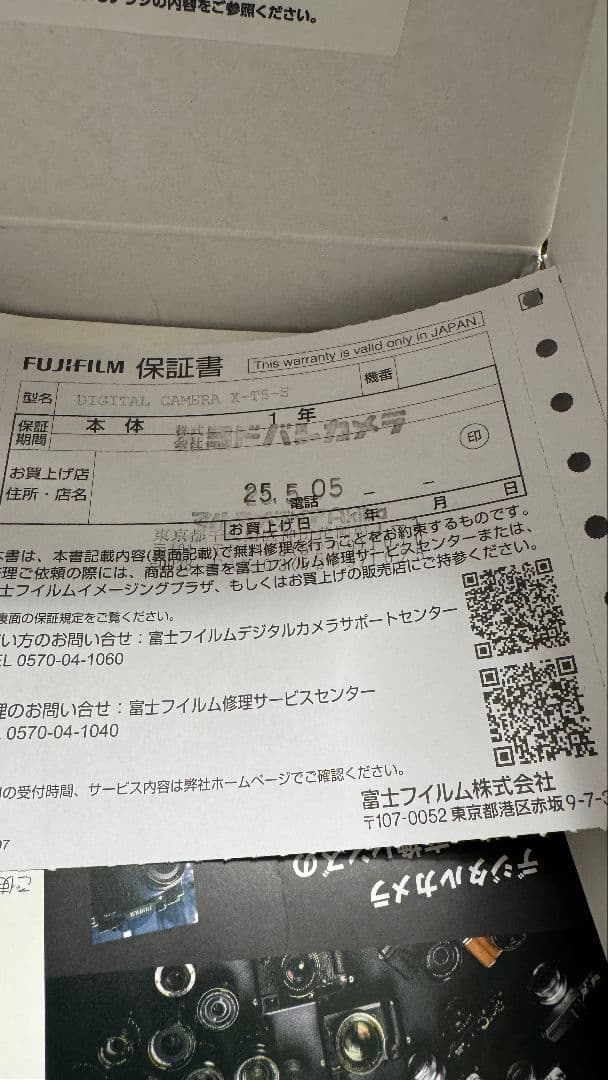 の内容をご参照ください。
FUJIFILM 保証書
This warranty is valid only in JAPAN.
型名
DIGITAL CAMERA X-T5-S
機番
保証期間
本体
1年
株式会社ヨドバシカメラ
印
お買上げ店
住所・店名
25.5.05
電話
お買上げ日
年
月
日
東京都
本書は、本書記載内容(裏面記載)で無料修理を行うことをお約束するものです。
理ご依頼の際には、商品と本書を富士フイルム修理サービスセンターまたは、
士フイルムイメージングプラザ、もしくはお買上げの販売店にご持参ください。
裏面の保証規定をご覧ください。
い方のお問い合せ：富士フイルムデジタルカメラサポートセンター
EL 0570-04-1060
理のお問い合せ：富士フイルム修理サービスセンター
0570-04-1040
の受付時間、サービス内容は弊社ホームページでご確認ください。
富士フイルム株式会社
〒107-0052 東京都港区赤坂9-7-3
デジタルカメラ
交換レンズの
ご使